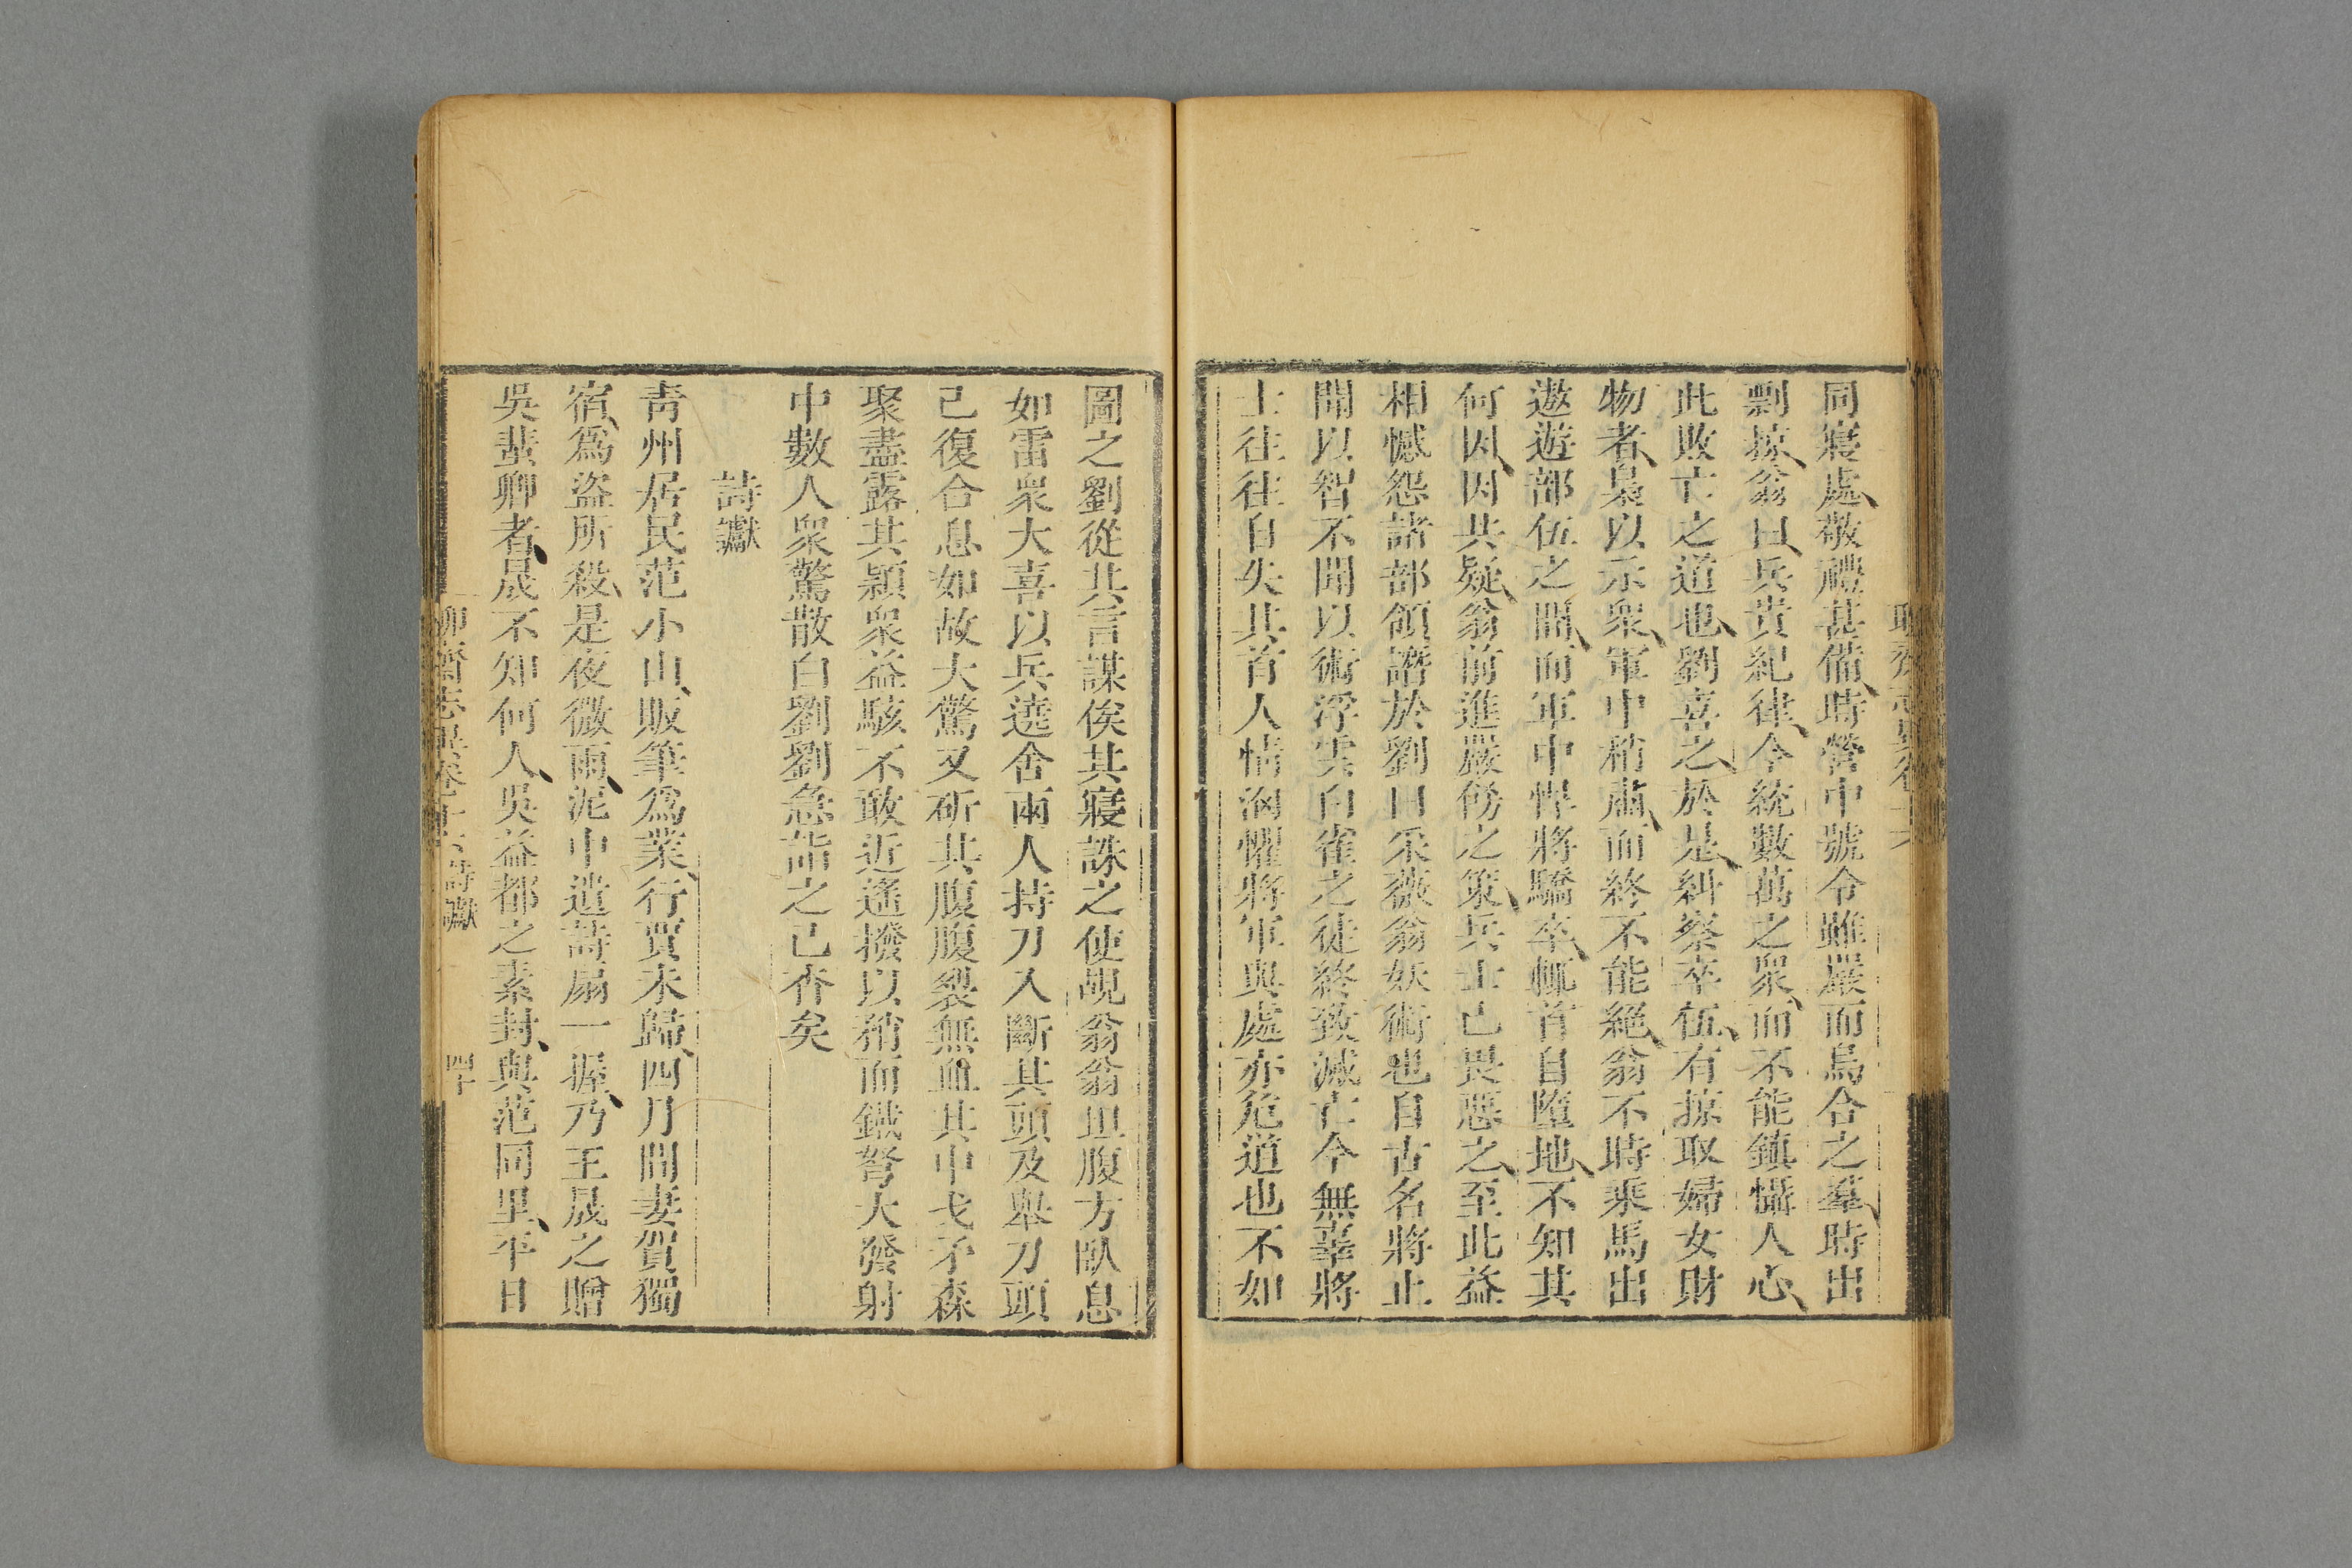 同寢處、敬禮甚備、時營中號令雖嚴而烏合之羣、時出
剽掠、翁曰、兵貴紀律、今統數萬之衆、而不能鎮懾人心、
此敗亡之道也、劉喜之、於是、糾察卒伍、有掠取婦女財
物者、梟以示衆、軍中稍肅、而終不能絕、翁不時乘馬出
遨遊部伍之間、而軍中悍將驕卒、輒首自墮地、不知其
何因、因共疑、翁前進嚴飭之策、兵士已畏惡之、至此益
相憾怨諸部領譖於劉曰采薇翁妖術也自古名將止
聞以智不聞以術浮雲白雀之徒終致滅亡今無辜將
士往往自失其首人情洶懼將軍與處亦危道也不如
圖之劉從其言謀俟其寢誅之使覘翁翁坦腹方臥息
如雷衆大喜以兵遶舍兩人持刀入斷其頭及舉刀頭
已復合息如故大驚又斫其腹腹裂無血其中戈矛森
聚盡露其穎衆益駭不敢近遙撥以矟而鐵弩大發射
中數人衆驚散白劉劉急詣之已杳矣
詩讞
靑州居民范小山、販筆爲業、行賈未歸、四月間妻賀獨
宿、爲盜所殺、是夜微雨、泥中遺詩扇一握、乃王晟之贈
吳蜚卿者、晟不知何人、吳益都之素封、與范同里、平日
聊齋志異卷十六 詩讞 四十